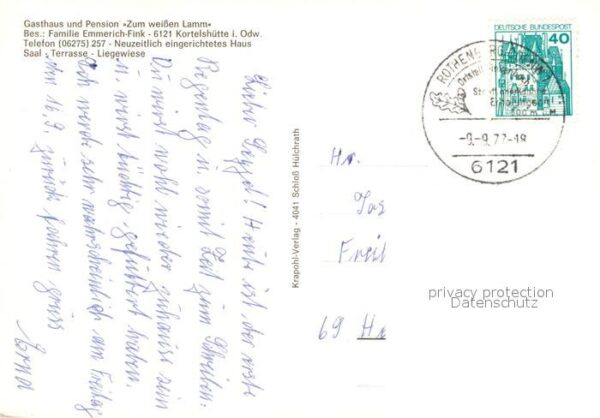 Gasthaus und Pension »Zum weißen Lamm«
Bes.: Familie Emmerich-Fink - 6121 Kortelshütte i. Odw.
Telefon (06275) 257 - Neuzeitlich eingerichtetes Haus
Saal - Terrasse - Liegewiese
DEUTSCHE BUNDESPOST
40
ROTHENBERG
-9.-9.77-18
6121
Krapohl-Verlag - 4041 Schloß Hülchrath
Lieber! Heute ist der erste
Regentag u. somit Zeit zum Schreiben.
Du wirst wohl wieder zuhause sein
u. wirst tüchtig gefüttert haben.
Ich werde sehr wahrscheinlich am Freitag
den 16.9. zurück fahren
Erna
Hr.
Freil
69
privacy protection
Datenschutz